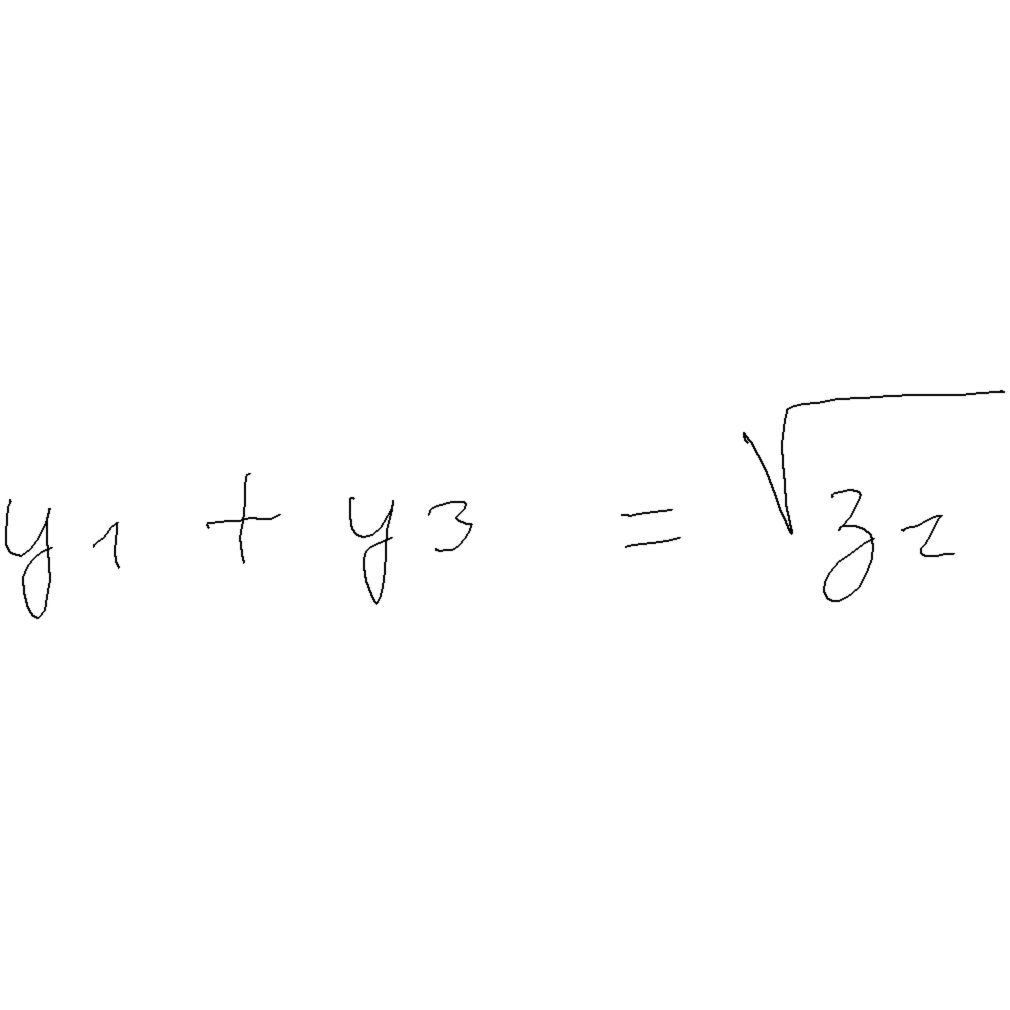 y₁ + y₃ = √z₂